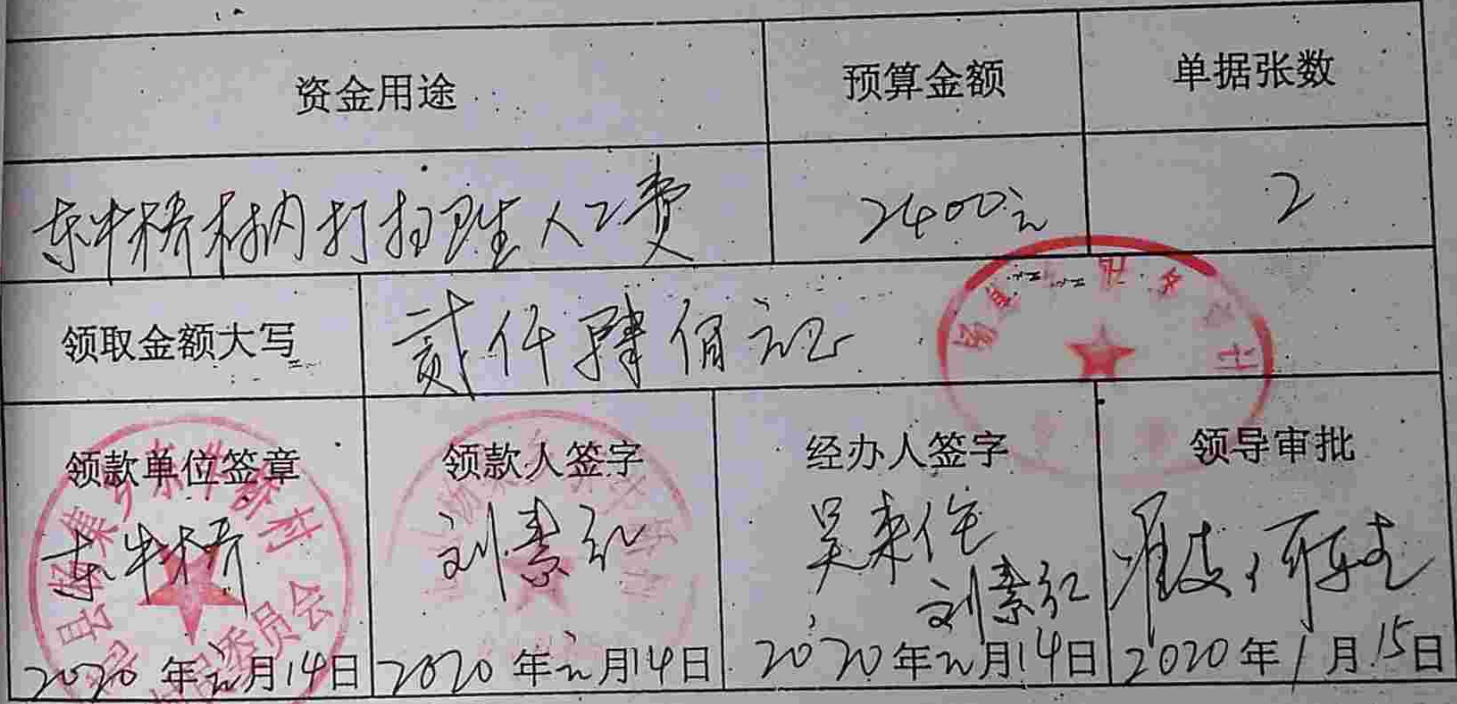 资金用途 预算金额 单据张数
东牛桥村内打扫卫生人工费 2400元 2
领取金额大写 贰仟肆佰元正
领款单位签章 领款人签字 经办人签字 领导审批
东牛桥 刘素红 吴来住
刘素红 准支
2020年元月14日 2020年元月14日 2020年元月14日 2020年1月15日